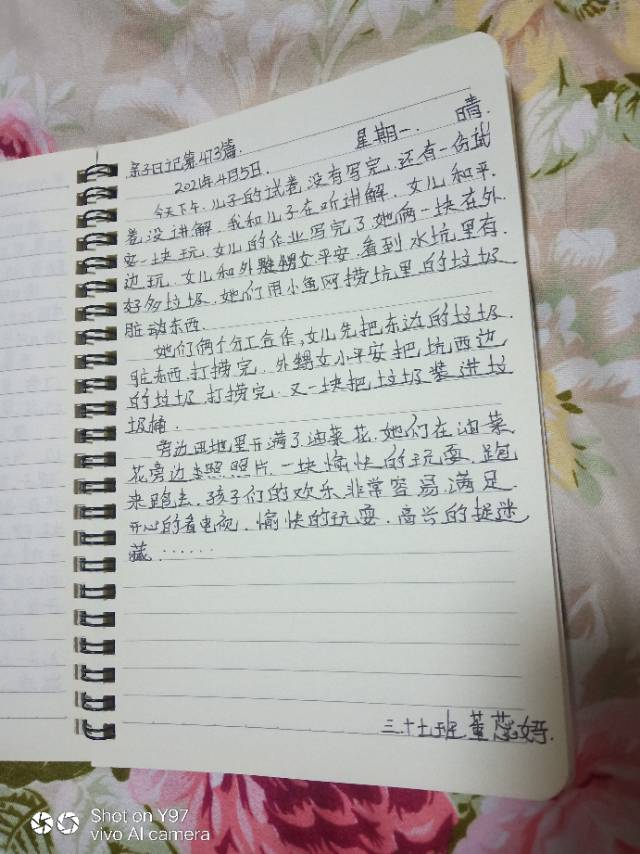 亲子日记第473篇.
2021年4月5日. 星期一. 晴.
今天下午.儿子的试卷没有写完.还有一份试
卷没讲解.我和儿子在听讲解.女儿和平
安一块玩.女儿的作业写完了她俩一块在外
边玩.女儿和外甥女平安.看到水坑里有
好多垃圾.她们用小鱼网捞坑里的垃圾
脏动东西.
她们俩个分工合作,女儿先把东边的垃圾.
脏东西.打捞完.外甥女小平安把坑西边
的垃圾打捞完.又一块把垃圾装进垃
圾桶.
旁边田地里开满了油菜花.她们在油菜
花旁边照照片.一块愉快的玩耍.跑
来跑去.孩子们的欢乐非常容易满足
开心的看电视.愉快的玩耍.高兴的捉迷
藏……
三.十七班董蕊妤.
Shot on Y97
vivo AI camera